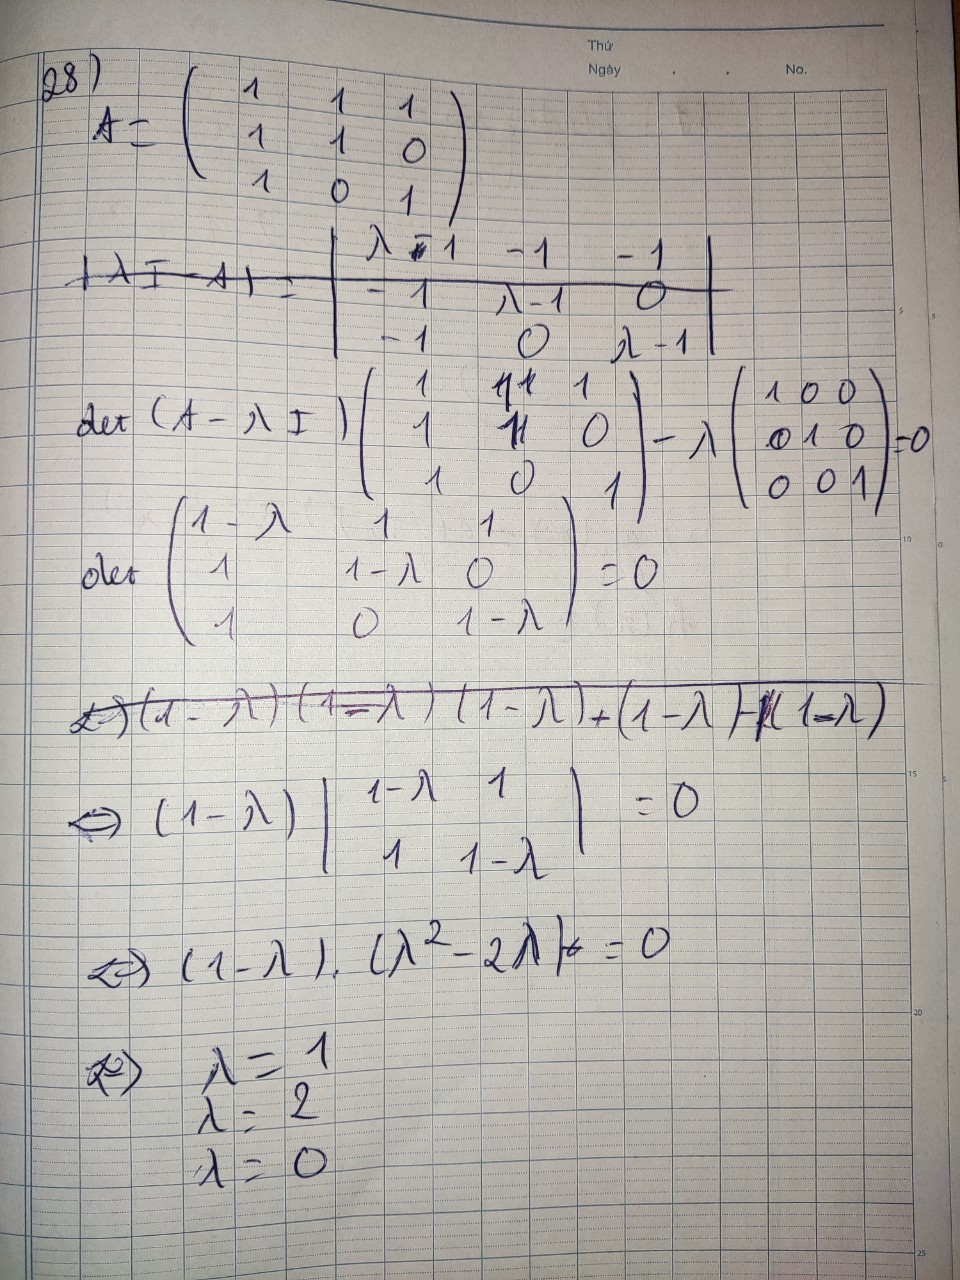 Thứ
Ngày . . No.
28)
A = ( 1 1 1
1 1 0
1 0 1 )
|λI - A| = | λ - 1 -1 -1 |
-1 λ-1 0
-1 0 λ-1
det (A - λI) ( 1 1 1
1 1 0
1 0 1 ) - λ ( 1 0 0
0 1 0
0 0 1 ) = 0
det ( 1-λ 1 1
1 1-λ 0
1 0 1-λ ) = 0
⇔ (1-λ)(1-λ)(1-λ)+(1-λ)-(1-λ)
⇔ (1-λ) | 1-λ 1
1 1-λ | = 0
⇔ (1-λ). (λ² - 2λ) = 0
⇔ λ = 1
λ = 2
λ = 0
5
10
15
20
25